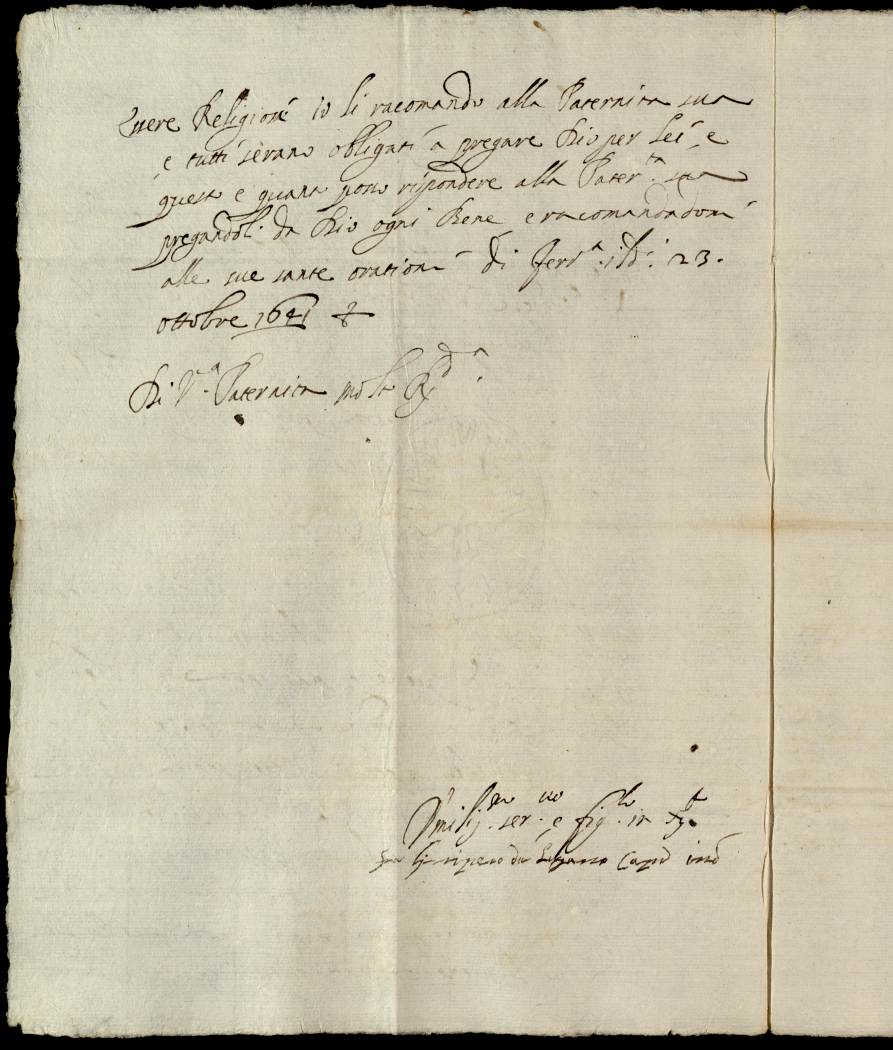 Religiosi io li racomando alla Paternita sua
e tutti serano obligati a pregare Dio per Lei, e
questo e quanto posso rispondere alla Pater.ta sua
pregandoli da Dio ogni Bene e racomandadomi
alle sue sante orationi di Ferr.a il di 23.
ottobre 1641
Di V.a Paternita molto R.da
Vmiliss.mo ser.vo e fig.lo in
da Capno